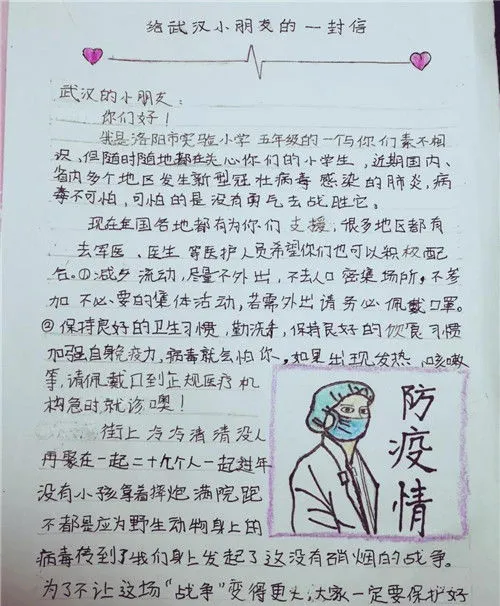 给武汉小朋友的一封信
武汉的小朋友:
你们好!
我是洛阳市实验小学五年级的一个与你们素不相
识、但随时随地都在关心你们的小学生,近期国内、
省内多个地区发生新型冠壮病毒感染的肺炎,病
毒不可怕,可怕的是没有勇气去战胜它。
现在全国各地都有为你们支援,很多地区都有
去军医、医生等医护人员希望你们也可以积权配
合。①减少流动,尽量不外出,不去人口密集场所,不参
加不必要的集体活动,若需外出请务必佩戴口罩。
②保持良好的卫生习惯,勤洗手,保持良好的饮食习惯
加强自身免疫力,病毒就会怕你,如果出现发热、咳嗽
等,请佩戴口到正规医疗机
构急时就诊噢!
街上冷冷清清没人
再聚在一起二十几个人一起过年
没有小孩拿着摔炮满院跑
不都是应为野生动物身上的
病毒传到了我们身上发起了这没有硝烟的战争。
为了不让这场“战争”变得更大,大家一定要保护好
防疫情